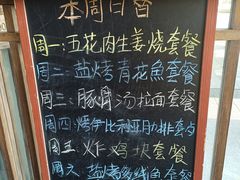 本周日替
周一:五花肉生姜烧套餐
周二:盐烤青花魚套餐
周三:豚骨汤拉面套餐
周四:烤伊比利亚肋排套
周五:炸鸡块套餐
周六:盐烤多线鱼套餐